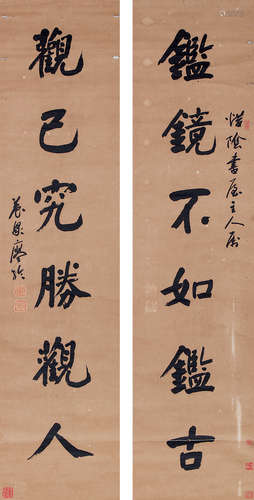 惜陰書屋主人屬
鑑鏡不如鑑古
觀己究勝觀人